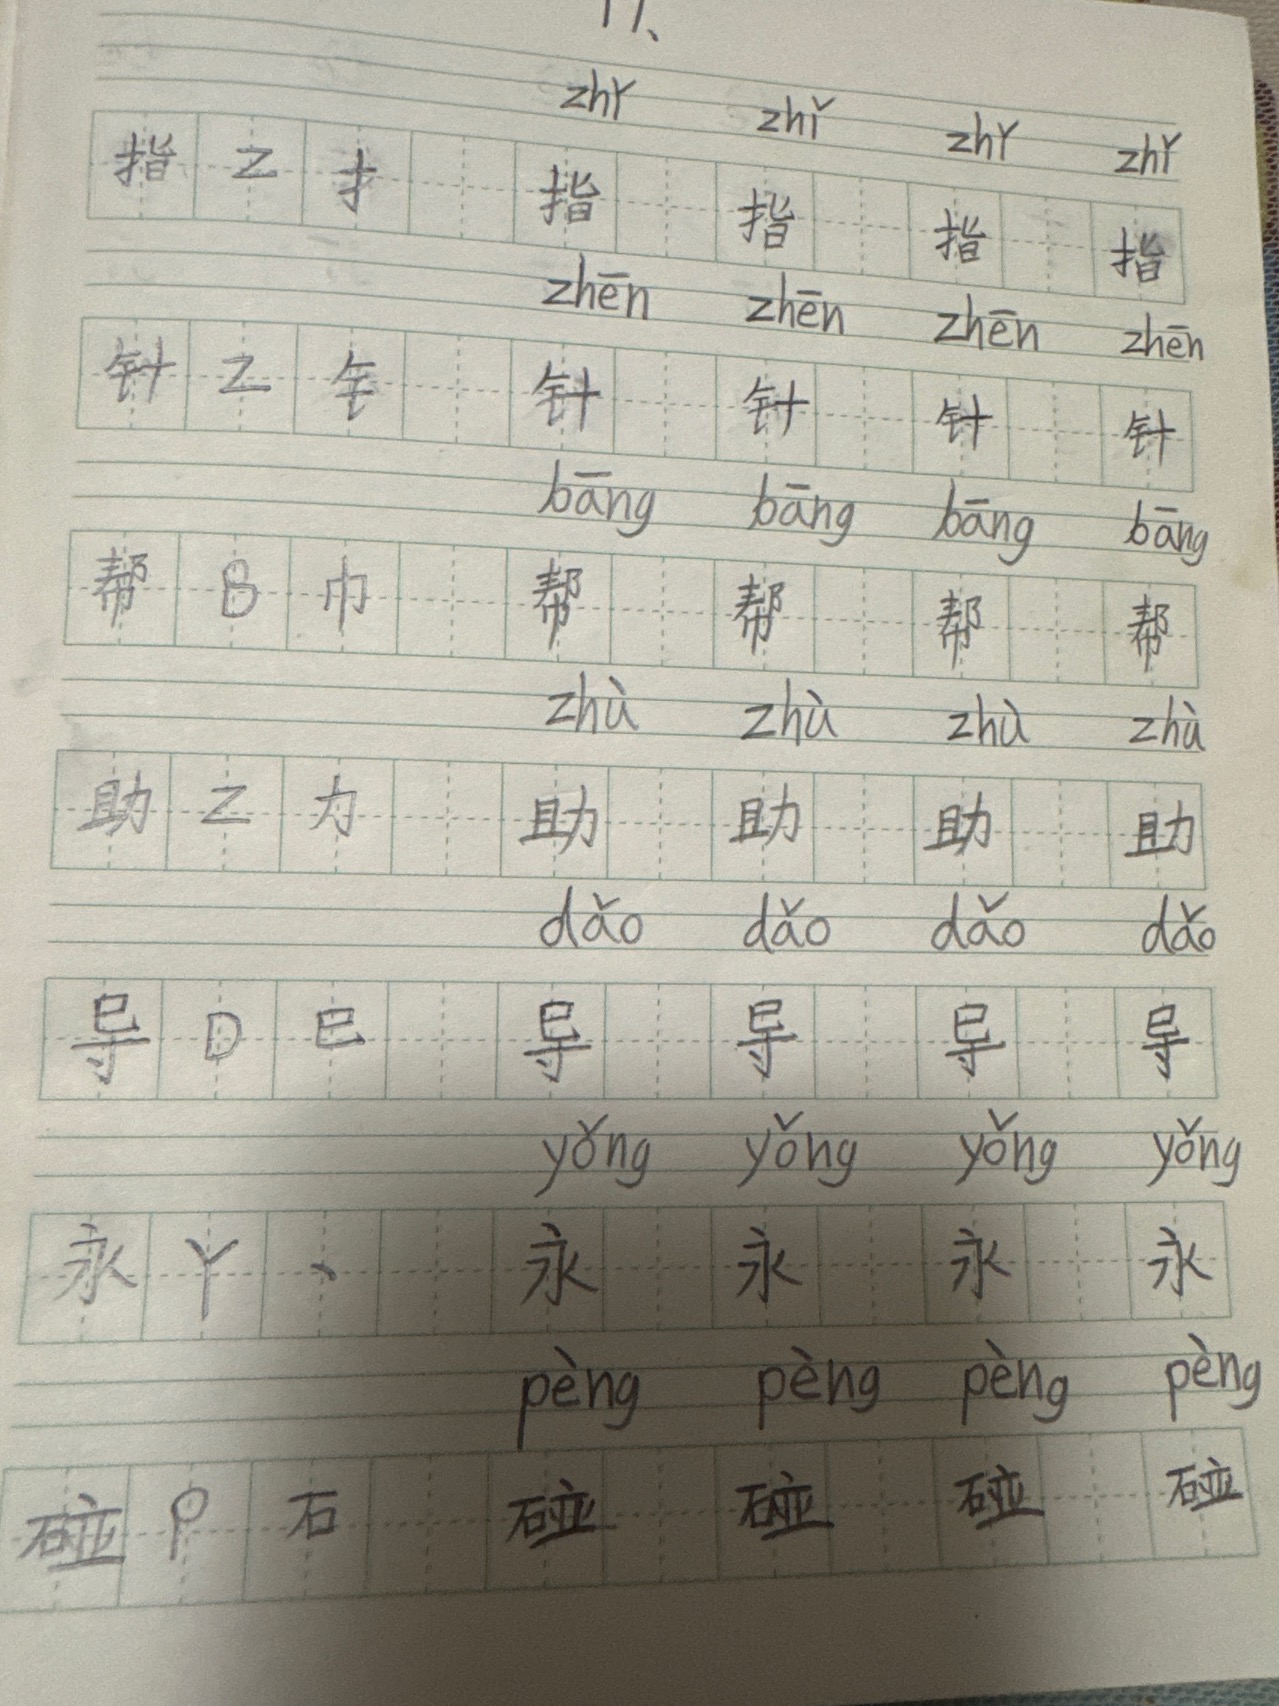 zhǐ zhǐ zhǐ zhǐ
指 Z 扌 指 指 指 指
zhēn zhēn zhēn zhēn
针 Z 钅 针 针 针 针
bāng bāng bāng bāng
帮 B 巾 帮 帮 帮 帮
zhù zhù zhù zhù
助 Z 力 助 助 助 助
dǎo dǎo dǎo dǎo
导 D 巳 导 导 导 导
yǒng yǒng yǒng yǒng
永 Y 丶 永 永 永 永
pèng pèng pèng pèng
碰 P 石 碰 碰 碰 碰